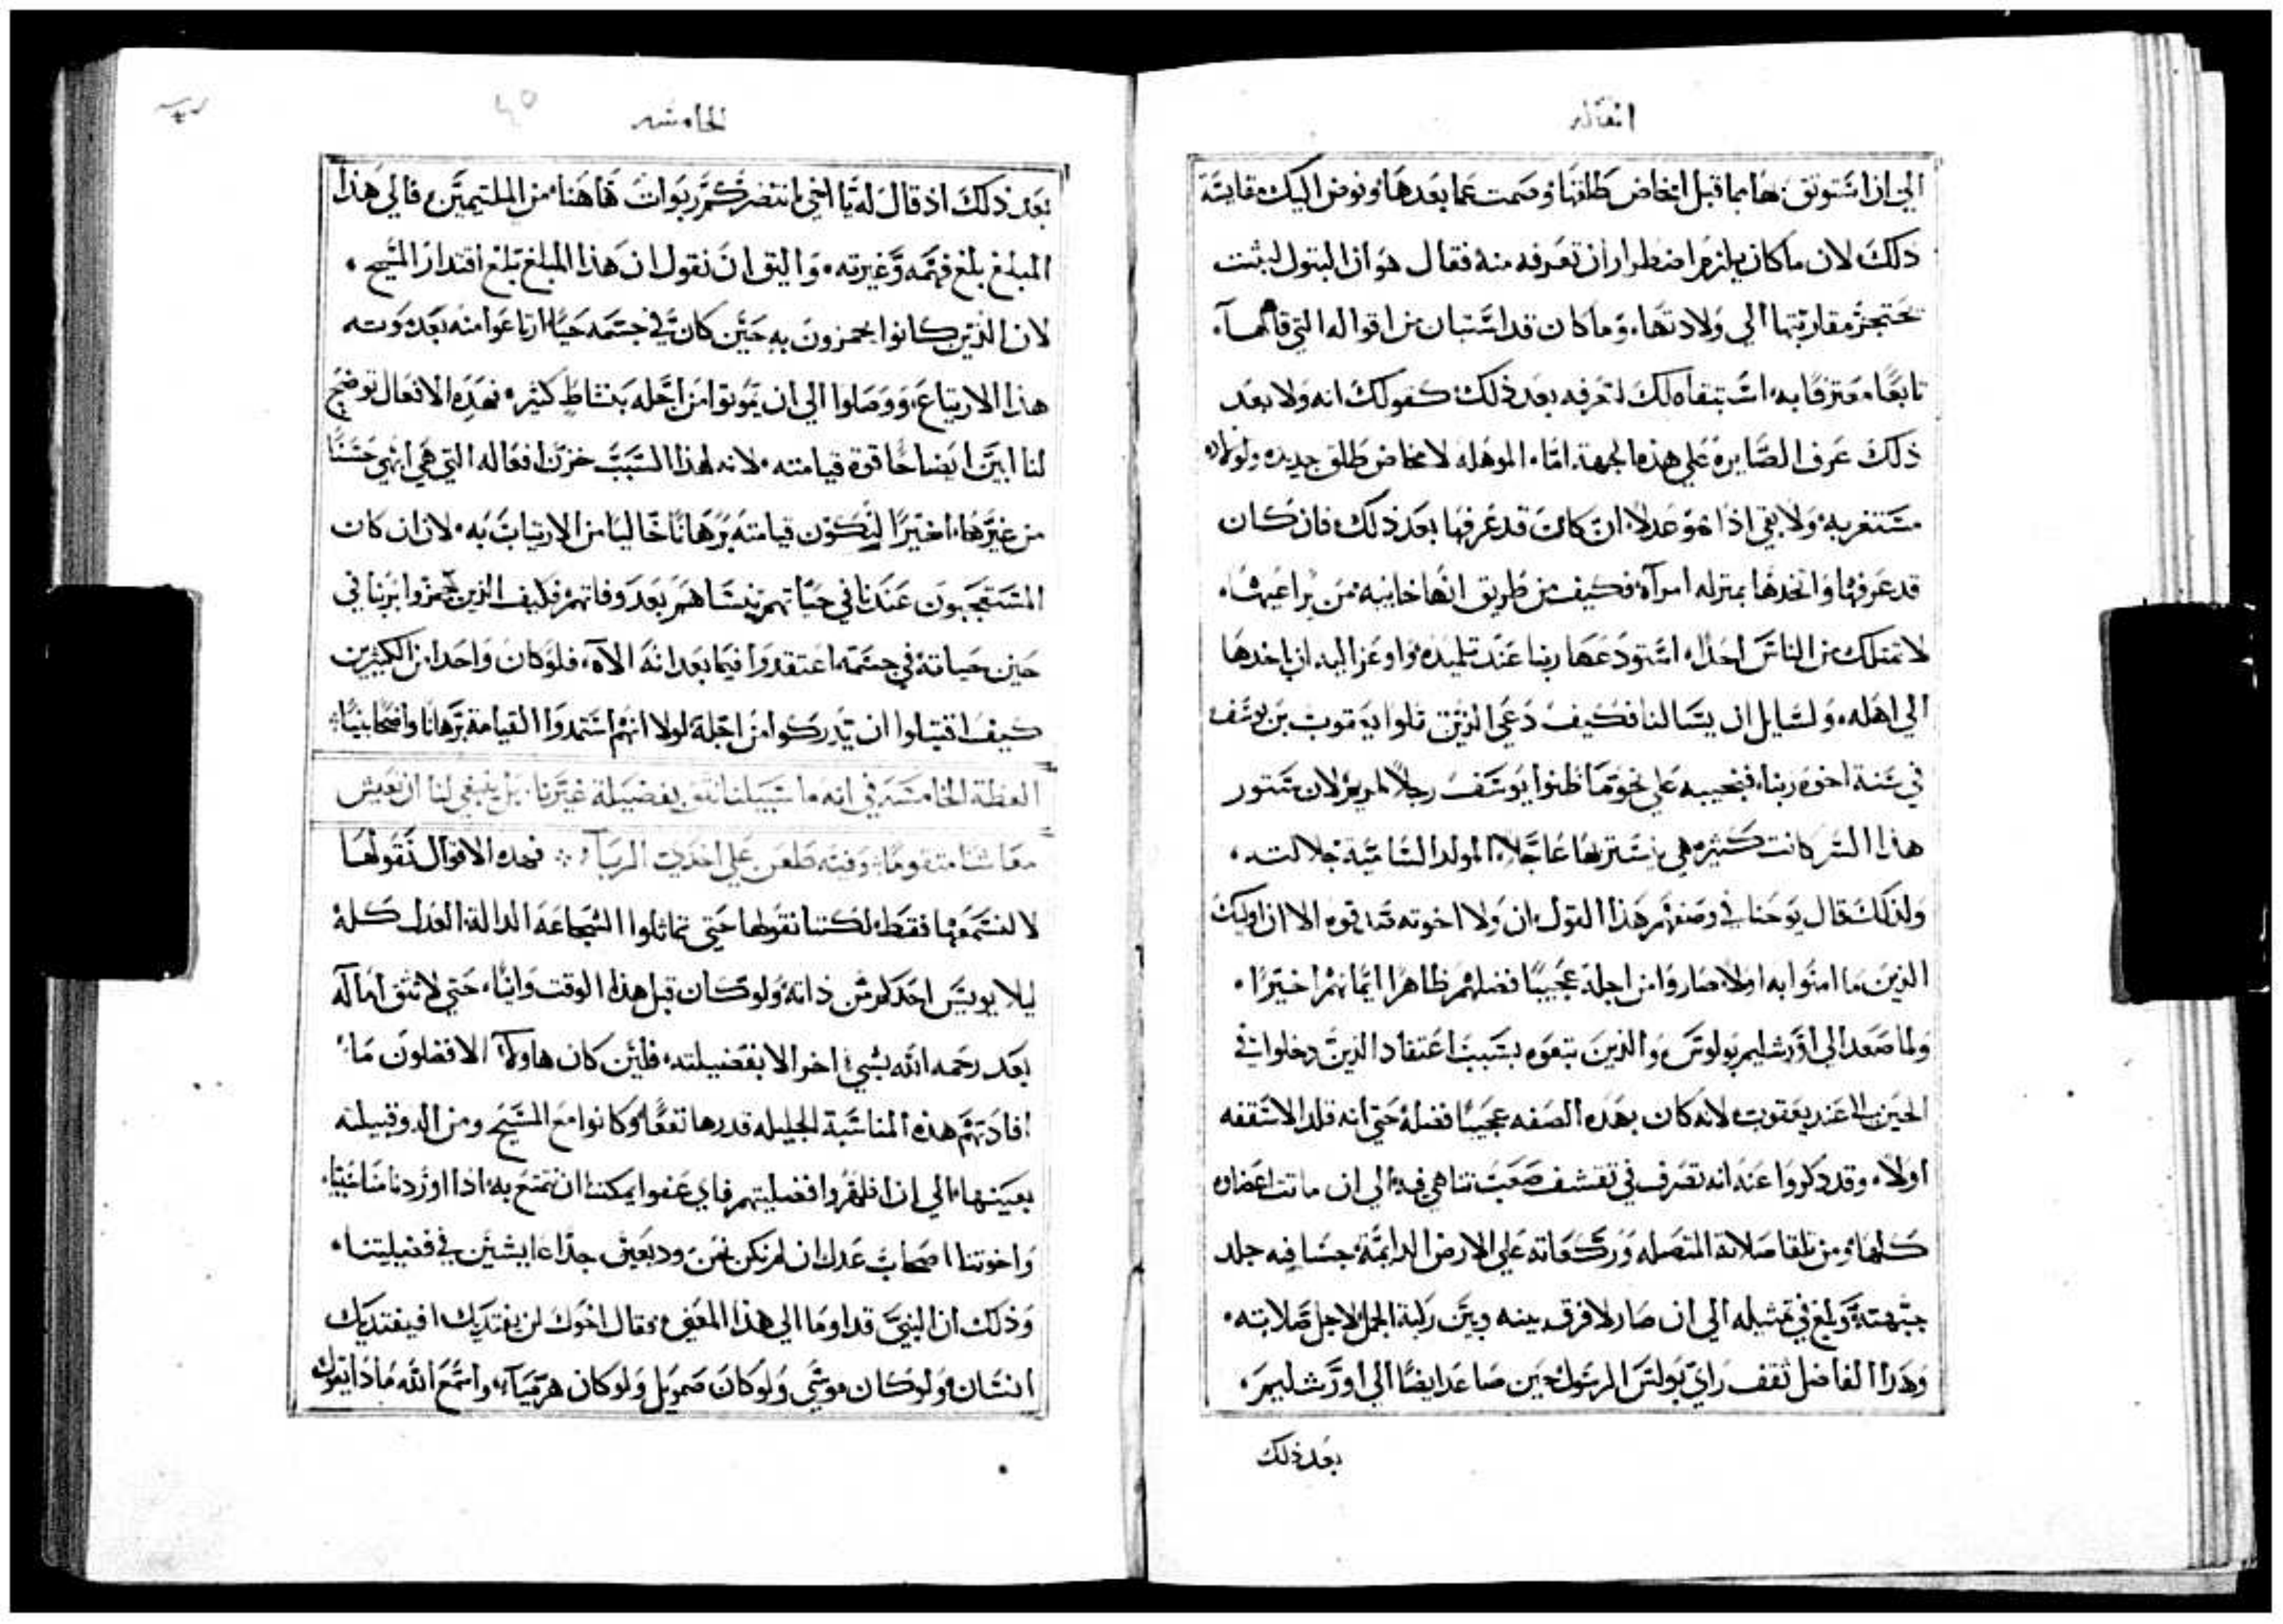 المقاله
الي ان استوثق بها بما قبل المخاض طلقها وصمت عما بعدها وفوض اليك مقايسة
ذلك لان ما كان يلزم اضطرار ان تعرفه منه فقال هو ان البتول لبثت
مقاربتها الي ولادتها وما كان قد استبان من اقواله التي قالها
تابعا معترفا به استبقاه لك لتعرفه بعد ذلك كقولك انه ولا بعد
ذلك عرف الصايرة علي هذه الجهة اما الموهله لامخاض طلق جديد
ولا بقي اذا هو عدلا ان كان قد عرفها بعد ذلك فان كان
قد عرفها واتخدها بمنزله امرآة فكيف من طريق انها خايبه من يراعيها
لا تمتلك من الناس احدا استودعها ربنا عند تلميذه واوعز اليه ان ياخدها
الي اهله ولسايل ان يسالنا فكيف دعي الذين تلوا يعقوب بن يوسف
في سنة اخوة ربنا فنجيبه علي نحو ما ظنوا يوسف رجلا لمريم لان ستور
هذا السر كانت كثيره هي يستر بها عاجلا المولد السامية جلالته
ولذلك قال يوحنا في وصفهم هذا القول ان ولا اخوته الا ان اوليك
الذين ما امنوا به اولا صاروا من اجله عجيبا فضلهم ظاهرا ايمانهم اخيرا
ولما صعد الي اورشليم بولوس والذين تبعوه بسبب اعتقاد الذين دخلوا في
الحين الا عند يعقوب لانه كان بهذه الصفه عجيبا فضله حتي انه قلد الاسقفه
اولا وقد دكروا عنه انه تصرف في تقشف صعب تناهي فيه الي ان ماتت اعضاه
كلها ومن تلقا صلاته المتصله وركعاته علي الارض الدايمة جسا فيه جلد
جبهته وبلغ في الي ان صار لا فرق بينه وبين ركبة الجمل لاجل صلابته
وهدا الفاضل ثقف راي بولس الرسول حين صاعد ايضا الي اورشليم
بعد ذلك
الخامسه
بعد ذلك اذ قال له يا اخي انتضر كم ربوات هاهنا من الملتيمين فالي هذا
المبلغ بلغ فهمه وغيرته واليق ان نقول ان هذا المبلغ بلغ اقتدار المسيح
لان الذين كانوا يحمزون به حين كان في جسمه حيا ارتاعوا منه بعد موته
هذا الارتياع ووصلوا الي ان يموتوا من اجله بنشاط كثير فهذه الافعال توضح
لنا ابين ايضاحا قوة قيامته لانه لهذا السبب خزن افعاله التي هي ابهي حسنا
من غيرها اخيرا لتكون قيامته برهانا خاليا من الارتياب به لان ان كان
المستعجبون عندنا في حياتهم ننساهم بعد وفاتهم فكيف الذين حمزوا بربنا في
حين حياته في جسمه اعتقدوا فيما بعد انه الاه فلو كان واحدا من الكثيرين
كيف اقتبلوا ان يدركوا من اجله لولا انهم استمدوا القيامة برهانا واضحا بينا
العظة الخامسة في انه ما سبيلنا نثق بفضيلة غيرنا بل ينبغي لنا ان نعيش
معاشنا متقوما وفيه طعن علي اخديت الربا فهده الاقوال نقولها
لا لنستمعها فقط لكننا نقولها حتي تماثلوا الشجاعة الدالة العدل كله
ليلا يويس احدكم من ذاته ولو كان قبل هذا الوقت وانيا حتي لا تثق اماله
بعد رحمه الله بشي اخر الا بفضيلته فلين كان هاولاء الافضلون ما
افادتهم هذه المناسبة الجليله قدرها نفعا وكانوا مع المسيح ومن اله وقبيلته
بعينها الي ان اظهروا فضيلتهم فاي عفو يمكننا ان نتمتع به اذا اوردنا مناسبنا
واخوتنا اصحاب عدل ان لم نكن نحن وديعين جدا عايشين في فضيلتنا
وذلك ان النبي قد اوما الي هذا المعني فقال اخوك لن يفتديك افيفتديك
انسان ولو كان موسي ولو كان صمويل ولو كان هرميآ واسمع الله ماذا يقول